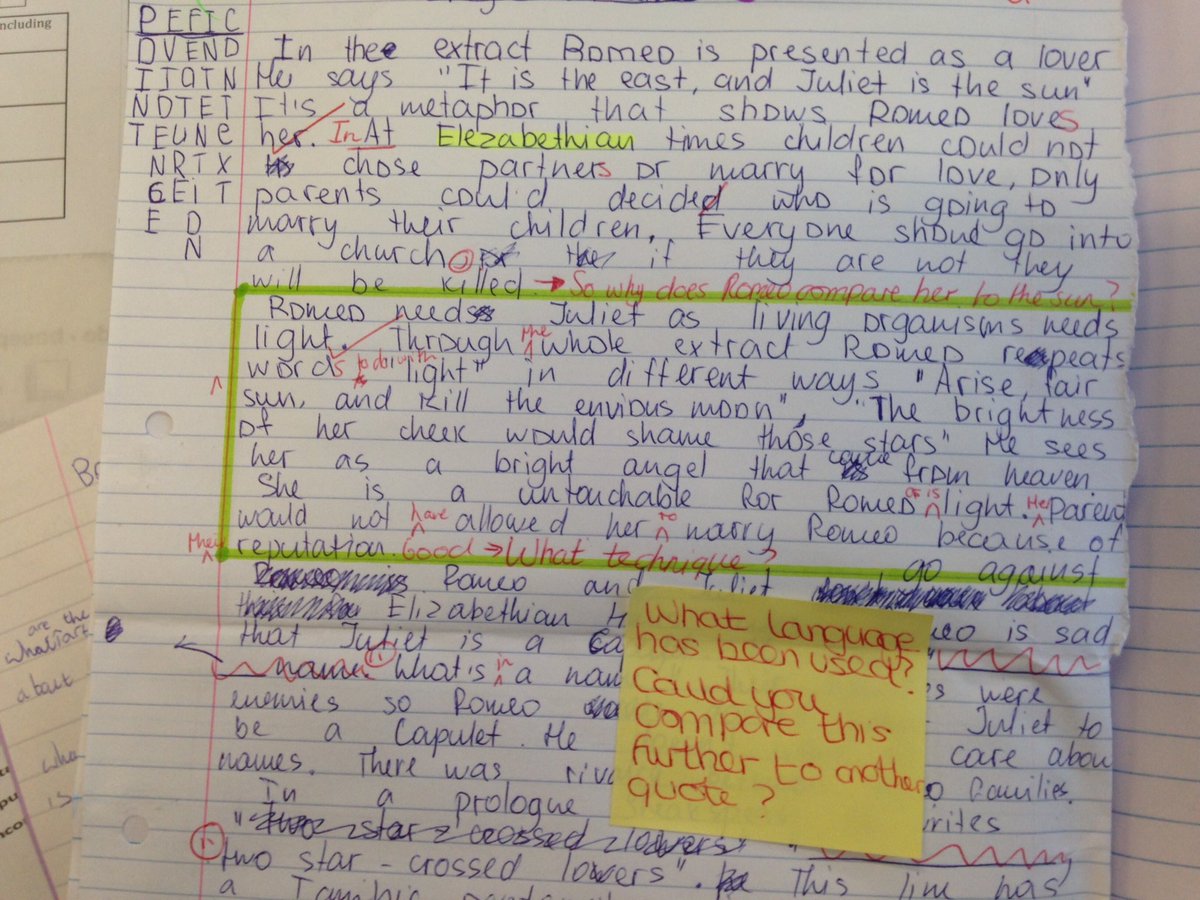 ncluding
PEFIC
DVEND In the extract Romeo is presented as a lover
IIOTN He says "It is the east, and Juliet is the sun"
NOTET It is a metaphor that shows Romeo loves
TEUNE her. In At Elezabethian times children could not
NRTX chose partners or marry for love, only
GEIT parents could decided who is going to
E O marry their children. Everyone shoud go into
N a church if they are not they
will be killed → So why does Romeo compare her to the sun?
Romeo needs Juliet as living organisms needs
light. Through the whole extract Romeo repeats
words to do with light" in different ways "Arise, fair
sun, and kill the envious moon", "The brightness
of her cheek would shame those stars" He sees
her as a bright angel that came from heaven.
She is a untouchable for Romeo as is light. Her parent
would not have allowed her to marry Romeo because of
their reputation. Good → What technique?
go against
Romeo and Juliet
Elizabethian
that Juliet is a is sad
name. What's in a were
enemies so Romeo Juliet to
be a Capulet. He care abou
names. There was families.
In a prologue writes
"two star-crossed lovers"
two star-crossed lowers". This line has
a Iambic
What language
has been used?
Could you
compare this
further to another
quote?
are the
what
about
is